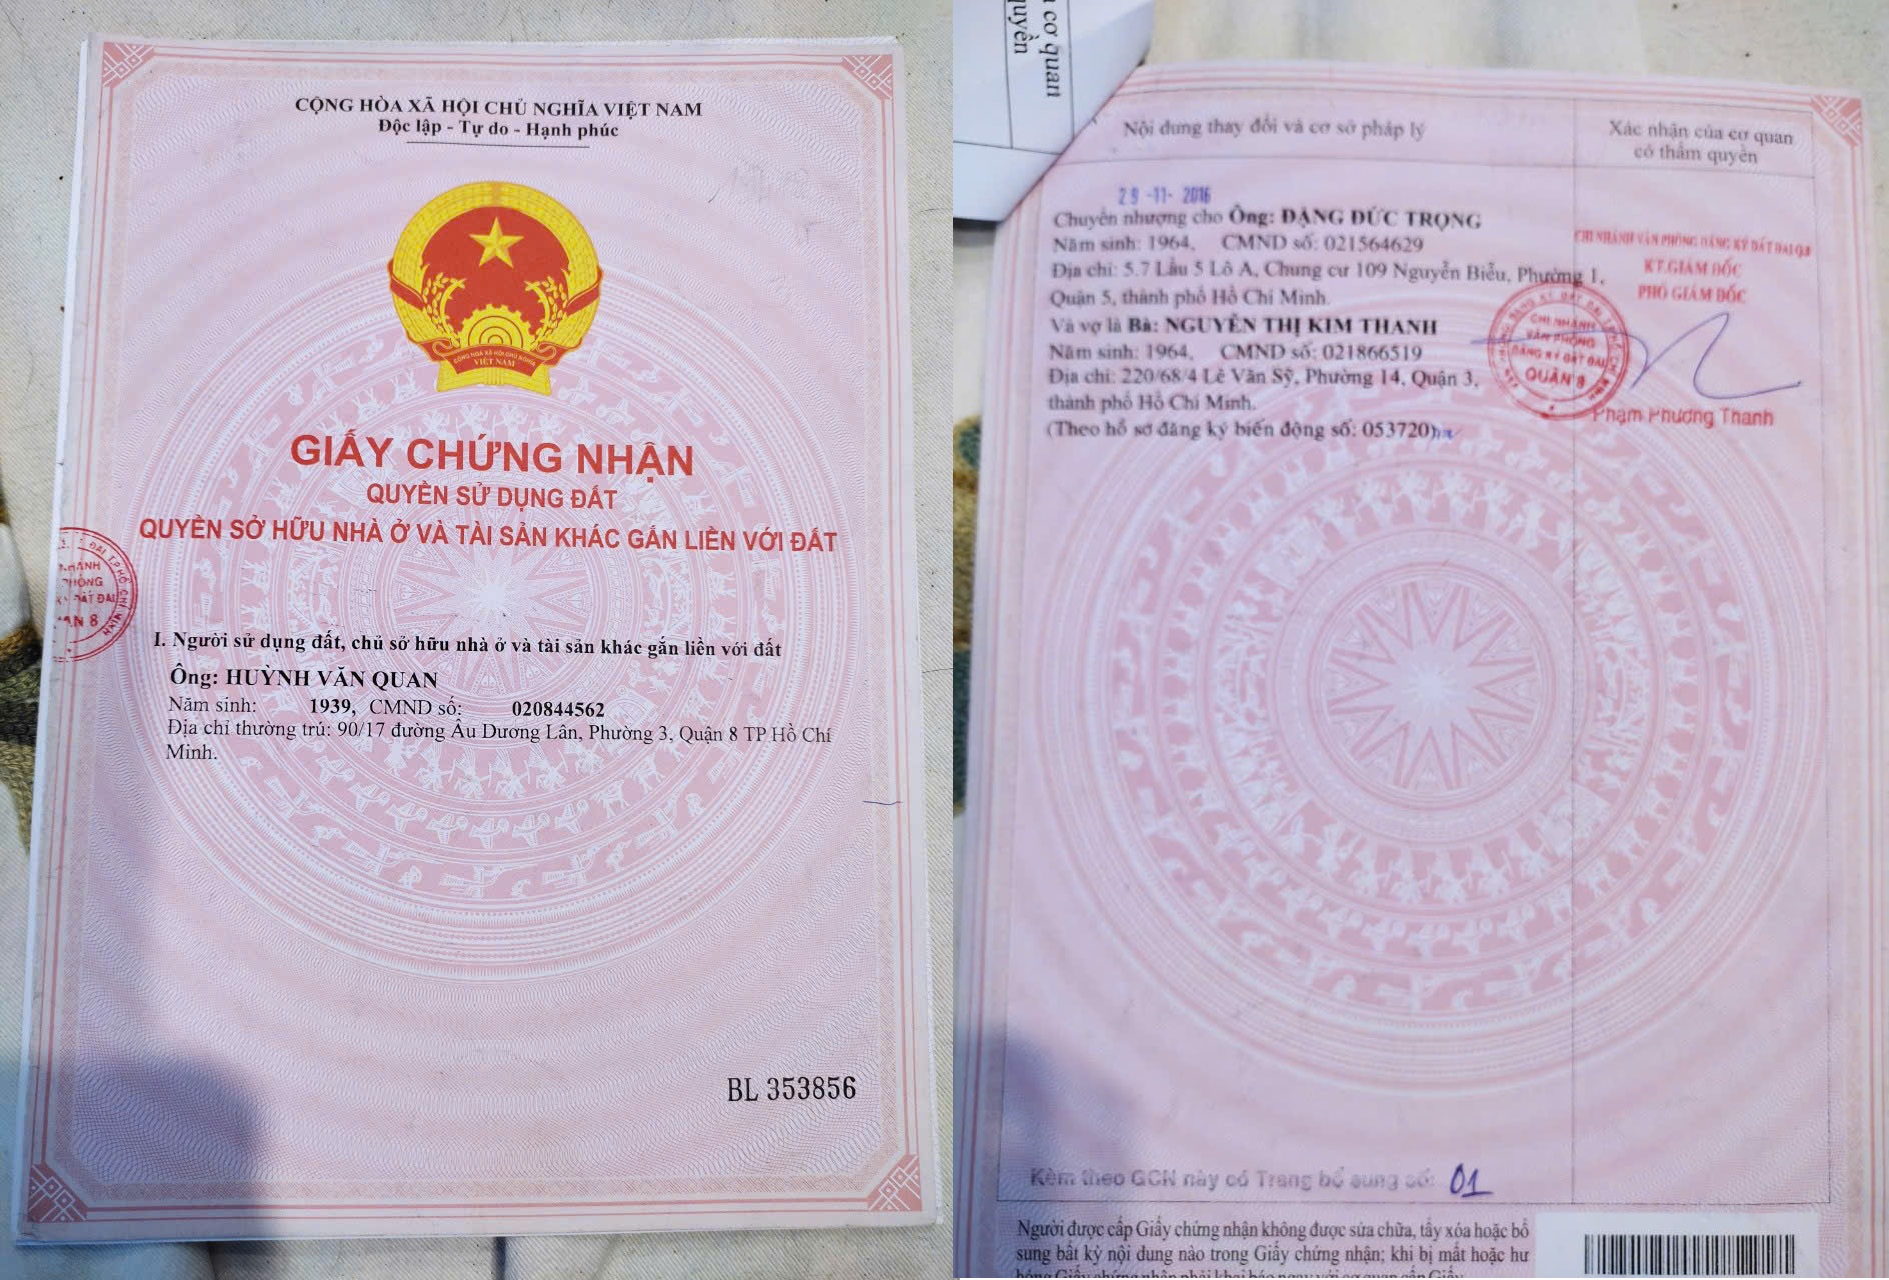 CỘNG HÒA XÃ HỘI CHỦ NGHĨA VIỆT NAM
Độc lập - Tự do - Hạnh phúc
CỘNG HÒA XÃ HỘI CHỦ NGHĨA
VIỆT NAM
GIẤY CHỨNG NHẬN
QUYỀN SỬ DỤNG ĐẤT
QUYỀN SỞ HỮU NHÀ Ở VÀ TÀI SẢN KHÁC GẮN LIỀN VỚI ĐẤT
ĐẤT ĐAI
I. Người sử dụng đất, chủ sở hữu nhà ở và tài sản khác gắn liền với đất
Ông: HUỲNH VĂN QUAN
Năm sinh: 1939, CMND số: 020844562
Địa chỉ thường trú: 90/17 đường Âu Dương Lân, Phường 3, Quận 8 TP Hồ Chí
Minh.
BL 353856
cơ quan
quyền
Nội dung thay đổi và cơ sở pháp lý
Xác nhận của cơ quan
có thẩm quyền
29 -11- 2016
Chuyển nhượng cho Ông: ĐẶNG ĐỨC TRỌNG
Năm sinh: 1964, CMND số: 021564629
Địa chỉ: 5.7 Lầu 5 Lô A, Chung cư 109 Nguyễn Biểu, Phường 1,
Quận 5, thành phố Hồ Chí Minh.
Và vợ là Bà: NGUYỄN THỊ KIM THANH
Năm sinh: 1964, CMND số: 021866519
Địa chỉ: 220/68/4 Lê Văn Sỹ, Phường 14, Quận 3,
thành phố Hồ Chí Minh.
(Theo hồ sơ đăng ký biến động số: 053720)
CHI NHÁNH VĂN PHÒNG ĐĂNG KÝ ĐẤT ĐAI Q.8
KT.GIÁM ĐỐC
PHÓ GIÁM ĐỐC
CHI NHÁNH
VĂN PHÒNG
ĐĂNG KÝ ĐẤT ĐAI
QUẬN 8
Phạm Phương Thanh
Kèm theo GCN này có Trang bổ sung số: 01
Người được cấp Giấy chứng nhận không được sửa chữa, tẩy xóa hoặc bổ
sung bất kỳ nội dung nào trong Giấy chứng nhận; khi bị mất hoặc hư